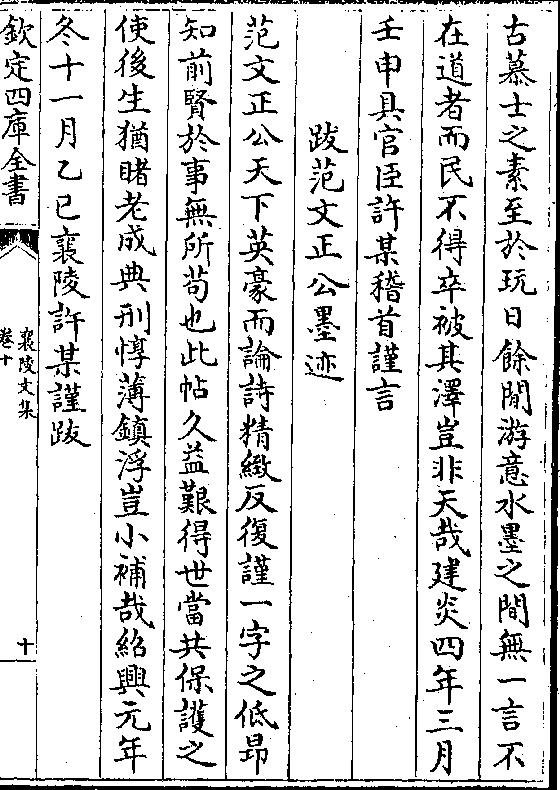 古慕士之素至於玩日餘閒游意水墨之間無一言不
在道者而民不得卒被其澤豈非天哉建炎四年三月
壬申具官臣許某稽首謹言
跋范文正公墨迹
范文正公天下英豪而論詩精緻反復謹一字之低昂
知前賢於事無所苟也此帖久益艱得世當共保護之
使後生猶睹老成典刑惇薄鎮浮豈小補哉紹興元年
冬十一月乙巳襄陵許某謹跋
欽定四庫全書
襄陵文集
卷十
十